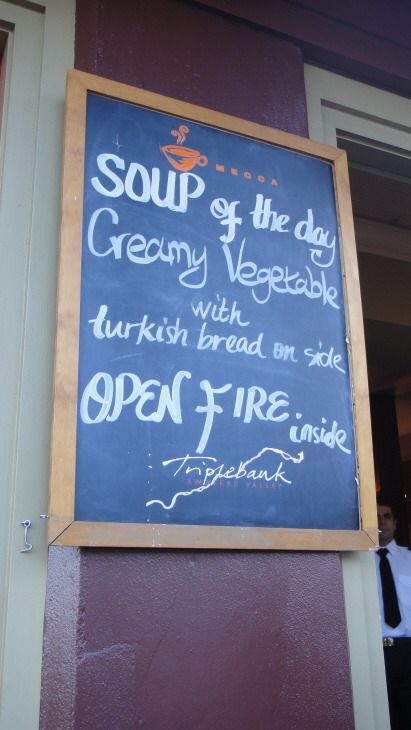 MECCA
SOUP of the day
Creamy Vegetable
with
turkish bread on side
OPEN FIRE inside
Triplebank
AWATERE VALLEY